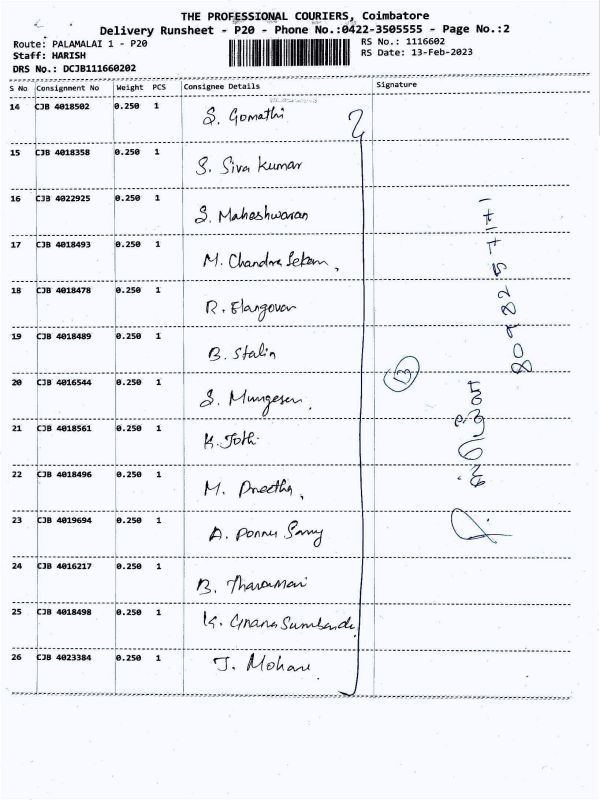 THE PROFESSIONAL COURIERS, Coimbatore
Delivery Runsheet - P20 - Phone No.:0422-3505555 - Page No.:2
Route: PALAMALAI 1 - P20
RS No.: 1116602
Staff: HARISH
RS Date: 13-Feb-2023
DRS No.: DCJB111660202
S No Consignment No Weight PCS Consignee Details Signature
14 CJB 4018502 0.250 1 S. Gomathi
15 CJB 4018358 0.250 1 S. Siva Kumar
16 CJB 4022925 0.250 1 S. Maheshwaran
17 CJB 4018493 0.250 1 M. Chandra Sekam,
18 CJB 4018478 0.250 1 R. Elangovan
19 CJB 4018489 0.250 1 B. Stalin
20 CJB 4016544 0.250 1 S. Murugesan.
13
21 CJB 4018561 0.250 1 K. Jothi
22 CJB 4018496 0.250 1 M. Preetha,
23 CJB 4019694 0.250 1 A. Ponnu Samy
24 CJB 4016217 0.250 1 B.
25 CJB 4018498 0.250 1 K. Gnana
26 CJB 4023384 0.250 1 J. Mohan